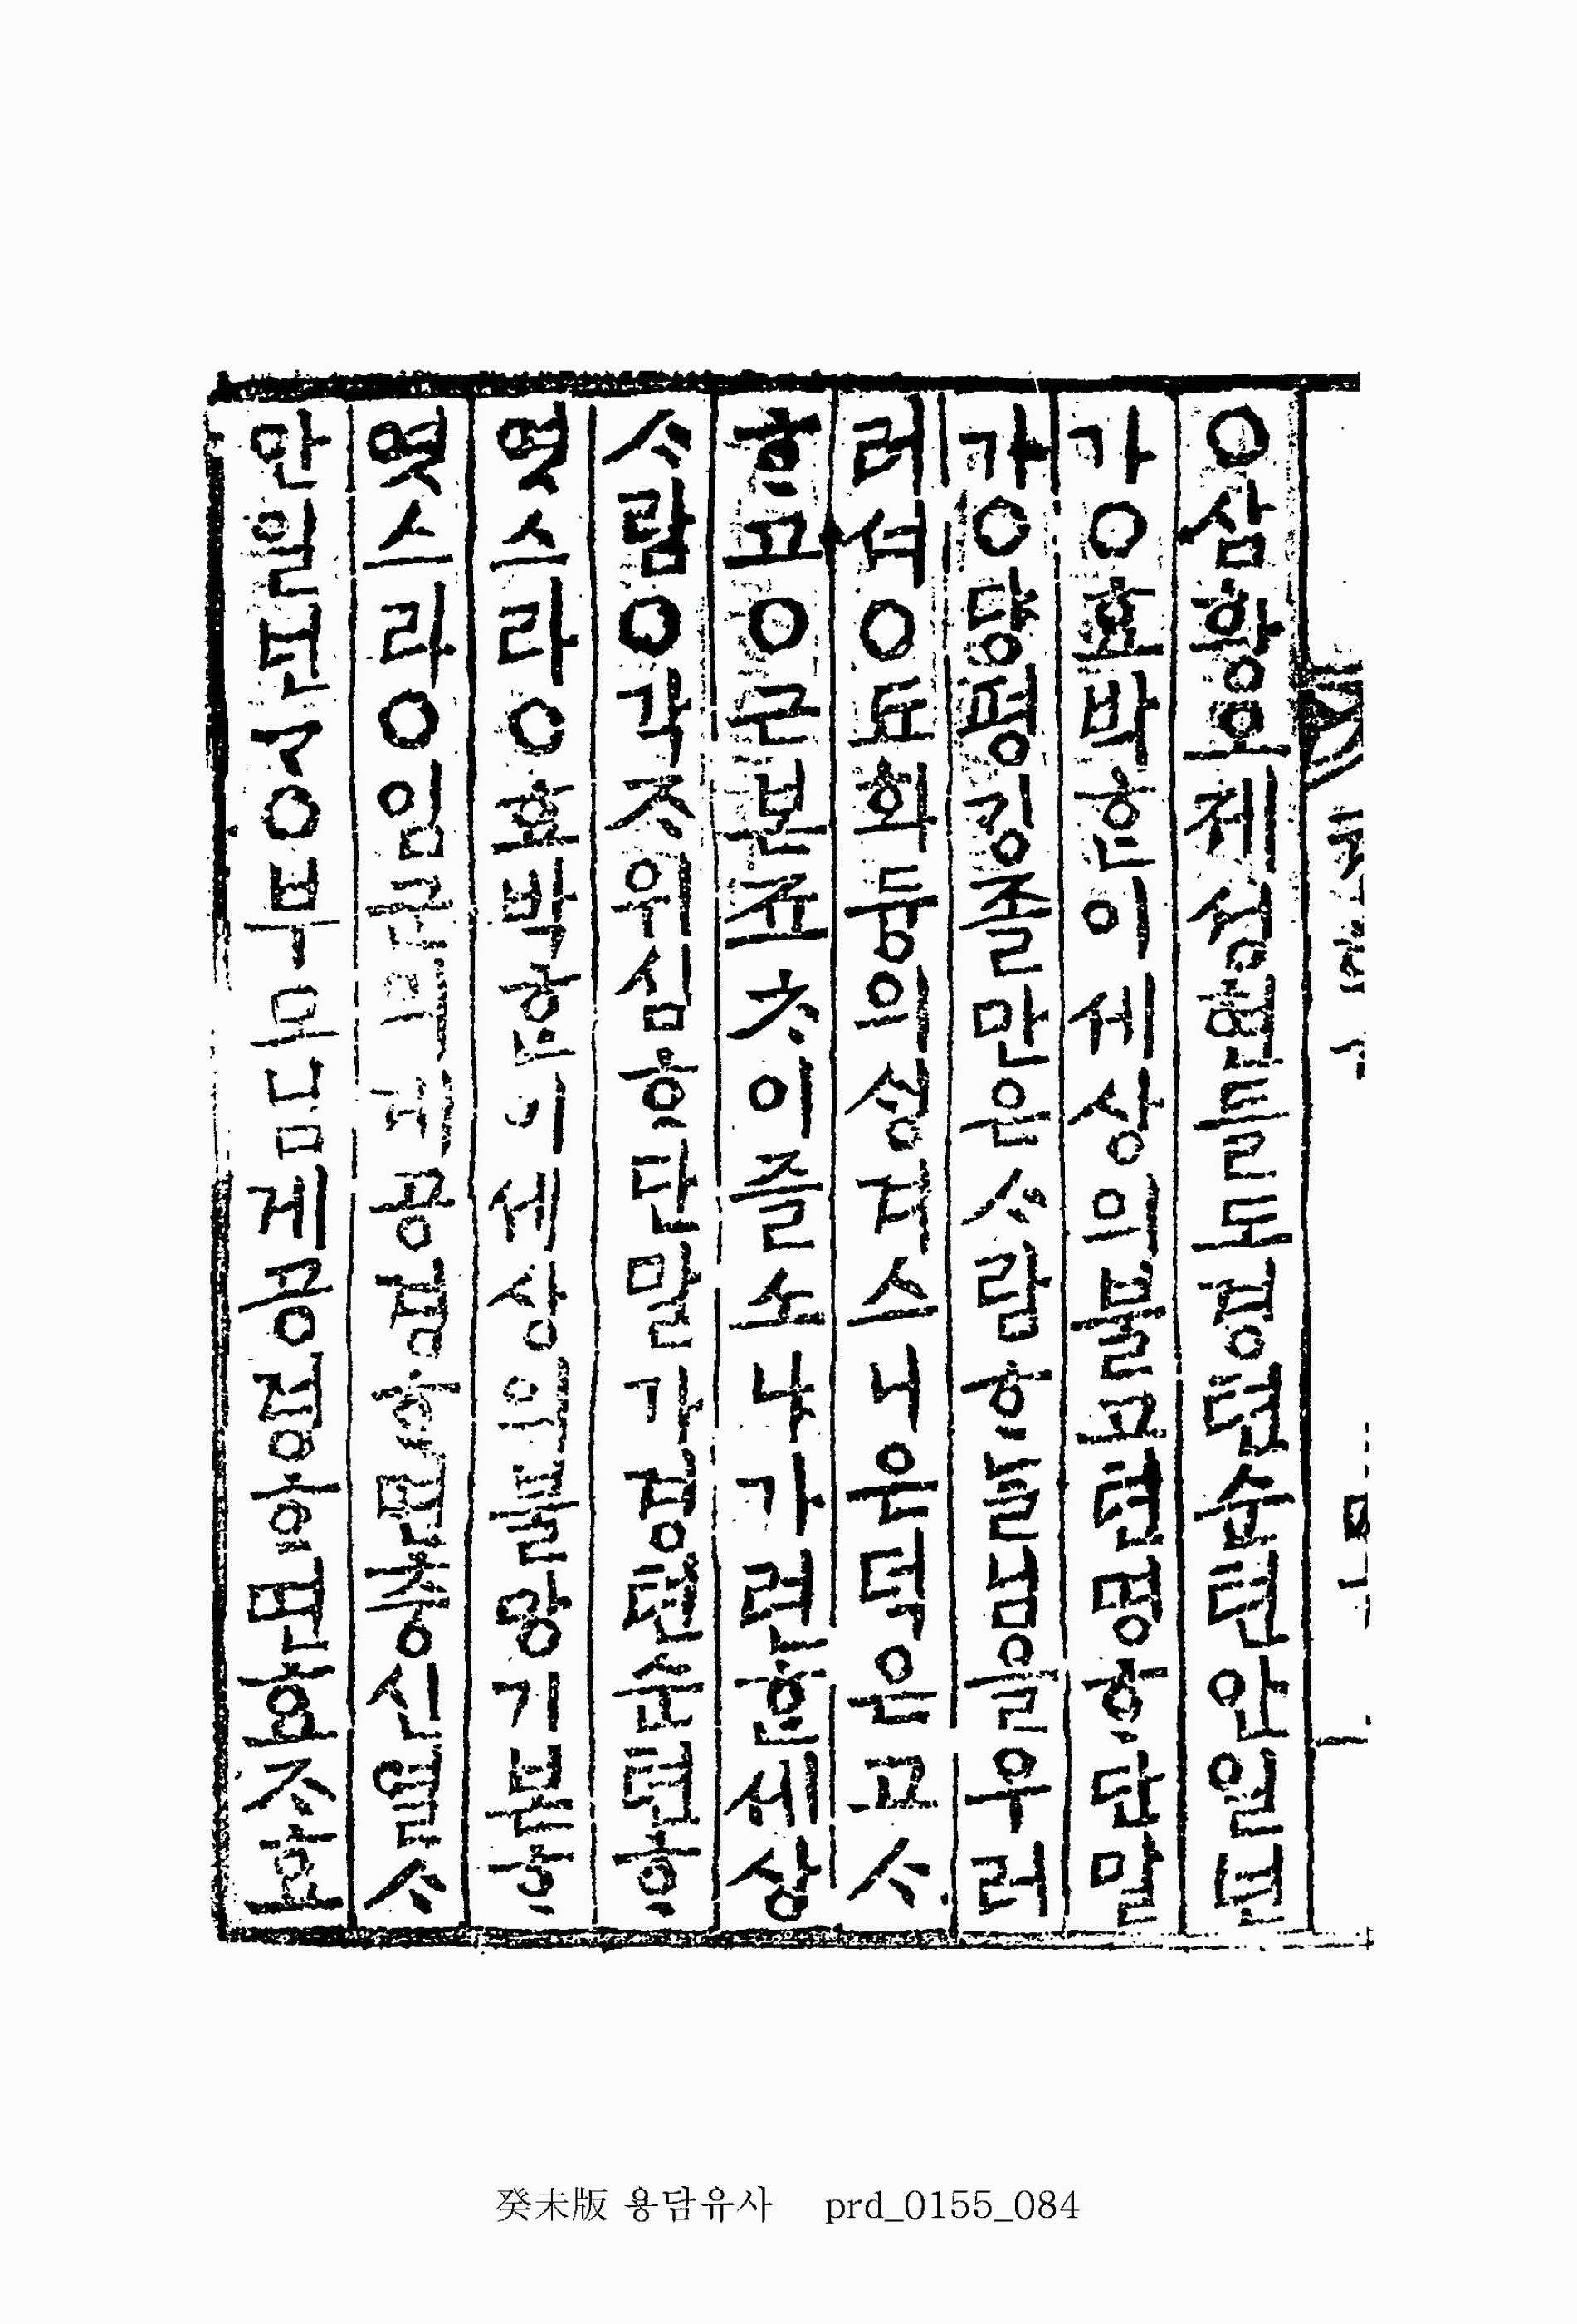 ○삼황오제셩현들도경텬슌텬안일넌
가○효박ᄒᆞᆫ이세상의불고텬명ᄒᆞ단말
가○댱평킹졸만은ᄉᆞ람ᄒᆞᄂᆞᆯ님을우러
러셔○됴화듕의셩겨스니은덕은고ᄉᆞ
ᄒᆞ고○근본죠ᄎᆞ이즐소냐가련ᄒᆞᆫ세상
ᄉᆞ람○각ᄌᆞ위심ᄒᆞ단말가경텬슌텬ᄒᆞ
엿스라○효박ᄒᆞᆫ이세상의불망기본ᄒᆞ
엿스라○임군의게공경ᄒᆞ면충신열ᄉᆞ
안일넌가○부모님게공경ᄒᆞ면효ᄌᆞ효
癸未版 용담유사 prd_0155_084